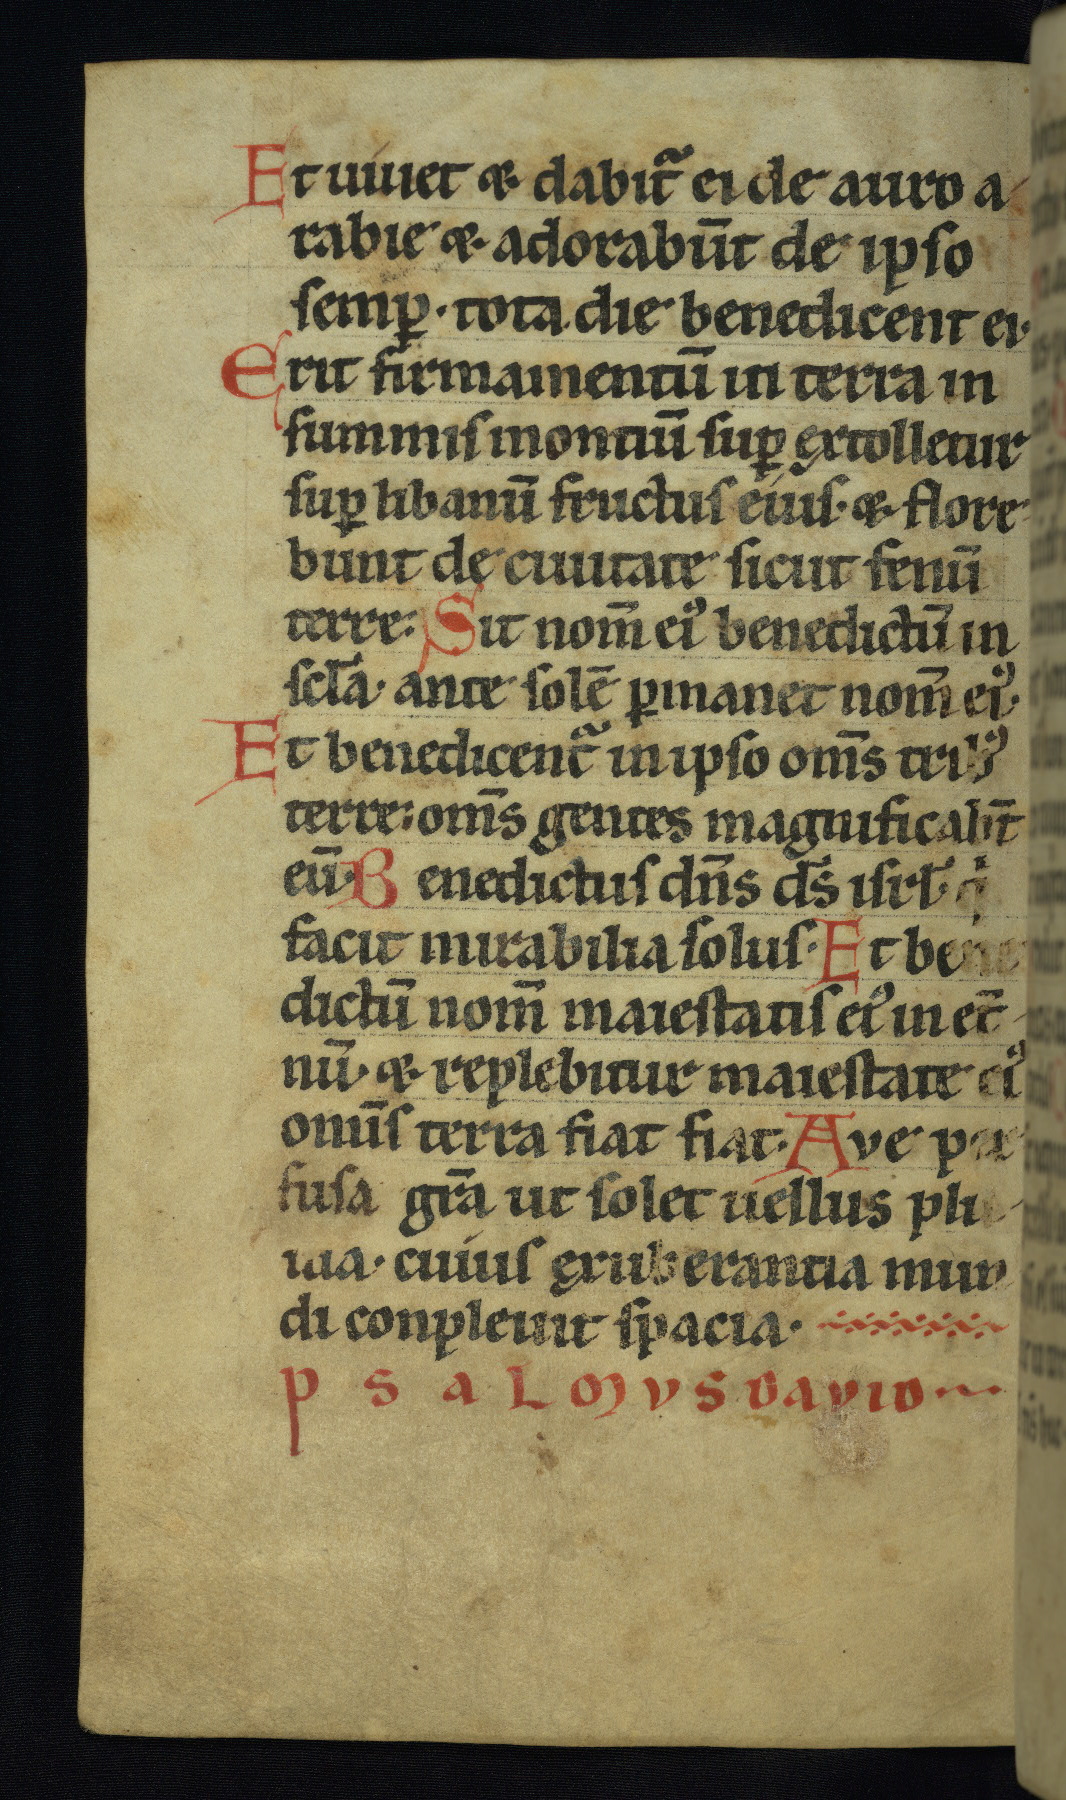 Et uiuet ⁊ dabit᷑ ei de auro a
rabie ⁊ adorabūt de ipso
semꝑ· tota die benedicent ei·
Erit firmamentū in terra in
summis montiū suꝑ extolletur
suꝑ libanū fructus eius· ⁊ flore
bunt de ciuitate sicut fenū
terre: Sit nom̄ eiꝰ benedictū in
scl̄a· ante solē ꝑmanet nom̄ eiꝰ·
Et benedicent᷑ in ipso om̄s tribꝰ
terre: om̄s gentes magnificabt̄
eū· Benedictus dn̄s ds̄ isrl̄· qͥ
facit mirabilia solus· Et bene
dictū nom̄ maiestatis eiꝰ in et̄
nū· ⁊ replebitur maiestate eiꝰ
omīs terra fiat fiat· Ave per
fusa gr̄a ut solet uellus plu
uia· cuius exuberantia mun
di conpleuit spacia·
PSALMVS DAVID